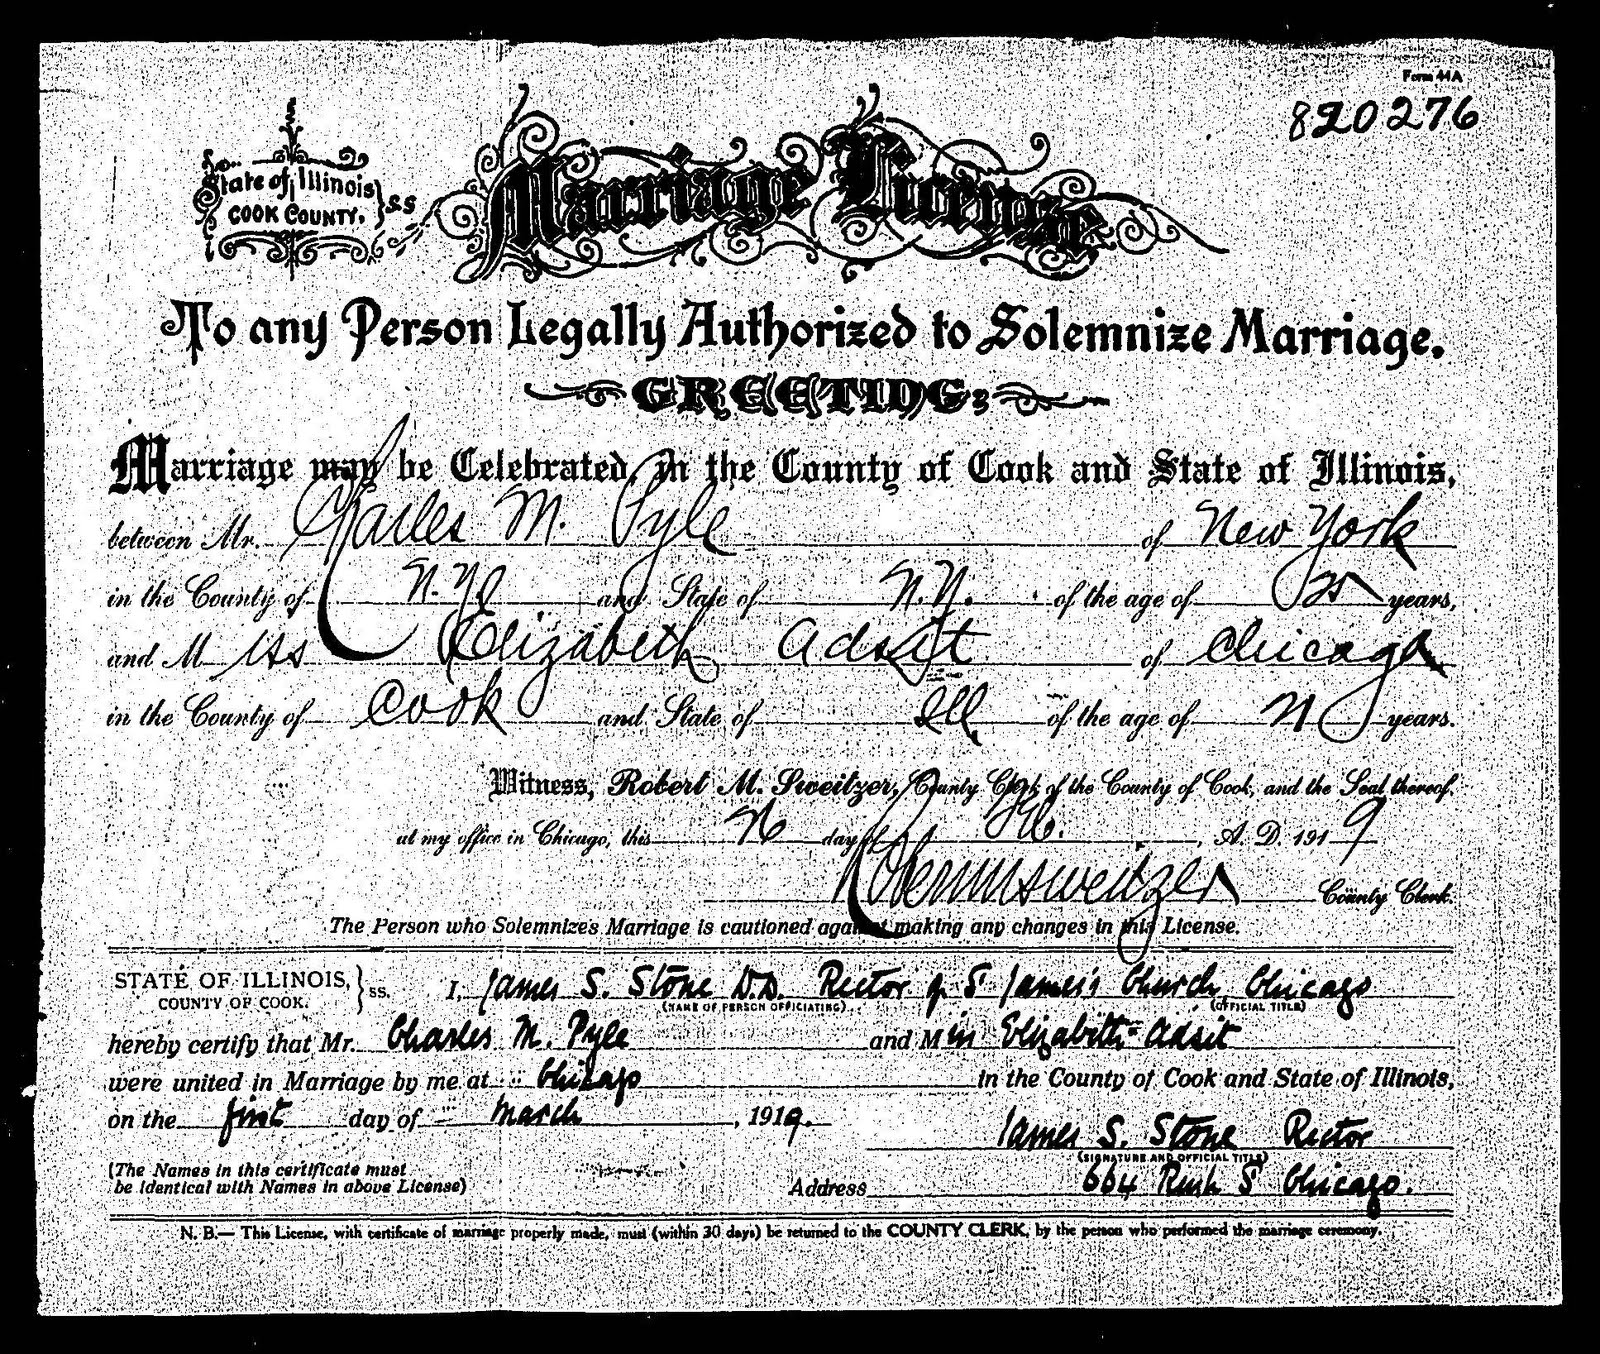 Form 44A
820276
State of Illinois } S.S
COOK COUNTY.
Marriage License
To any Person Legally Authorized to Solemnize Marriage.
GREETING:
Marriage may be Celebrated, in the County of Cook and State of Illinois,
between Mr. Charles M. Pyle of New York
in the County of N.Y. and State of N.Y. of the age of 25 years,
and Miss Elizabeth Adsit of Chicago
in the County of Cook and State of Ill. of the age of years.
Witness, Robert M. Sweitzer, County Clerk of the County of Cook, and the Seal thereof,
at my office in Chicago, this 26 day of Feb. , A. D. 1919
Robert M Sweitzer County Clerk.
The Person who Solemnizes Marriage is cautioned against making any changes in this License.
STATE OF ILLINOIS, } ss. I, James S. Stone D.D. Rector of S James's Church Chicago
COUNTY OF COOK. (NAME OF PERSON OFFICIATING) (OFFICIAL TITLE)
hereby certify that Mr. Charles M. Pyle and Miss Elizabeth Adsit
were united in Marriage by me at Chicago in the County of Cook and State of Illinois,
on the first day of March , 1919.
James S. Stone Rector
(SIGNATURE AND OFFICIAL TITLE)
(The Names in this certificate must
be identical with Names in above License)
Address 664 Rush S Chicago.
N. B.— This License, with certificate of marriage properly made, must (within 30 days) be returned to the COUNTY CLERK, by the person who performed the marriage ceremony.